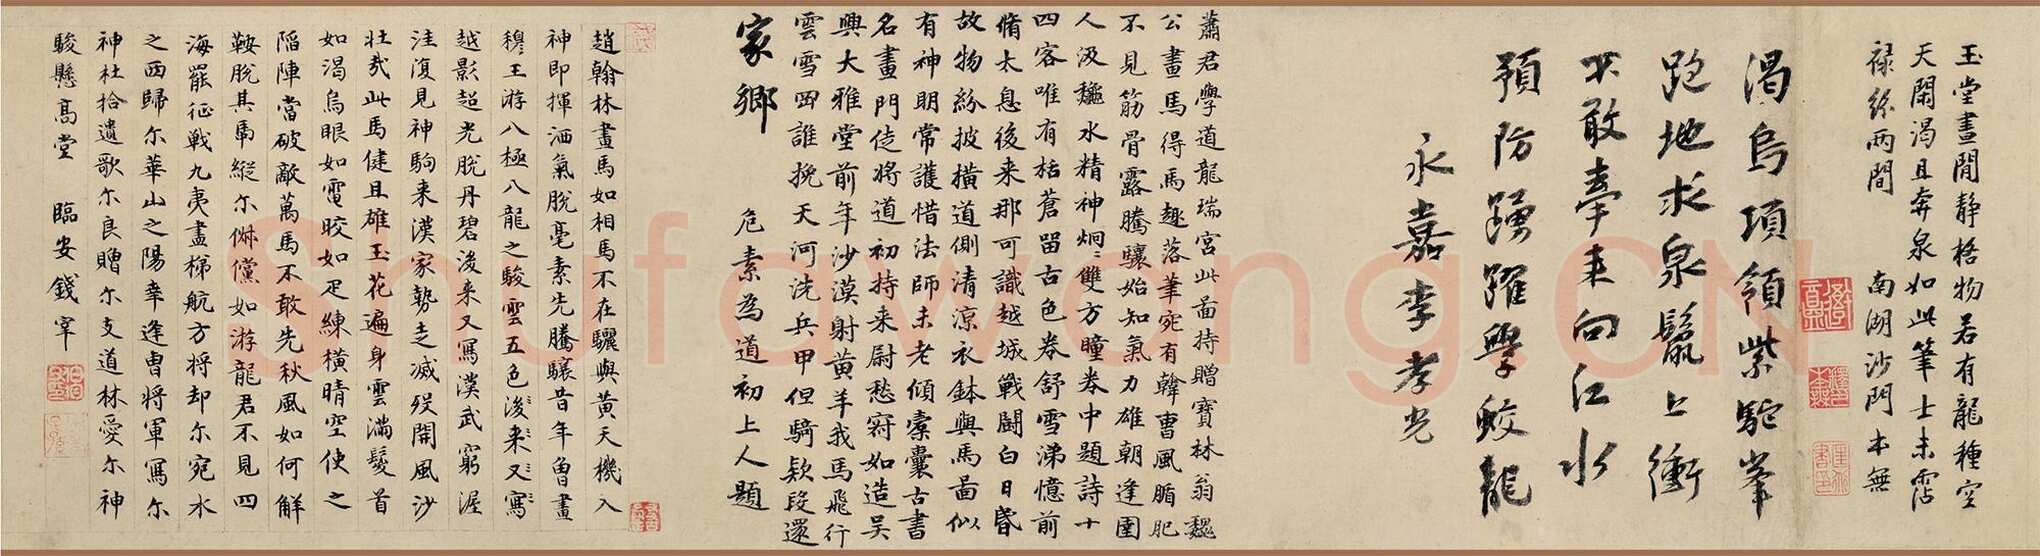 玉堂晝閒静格物若有龍種空
天閑渴且奔泉如此筆士未霑
禄絲两間　南湖沙門本無
渴烏項領紫駝峯
跑地求泉鬣上衝
不敢牽来向江水
預防踴躍學鮫龍
永嘉李孝光
蕭君學道龍瑞宮此畵持贈寶林翁魏
公畫馬得馬趣落筆宛有韓曹風腯肥
不見筋骨露騰驤始知氣力雄朝逢圉
人汲𥁕水精神炯〻雙方瞳卷中題詩十
四客唯有栝蒼留古色卷舒雪涕憶前
脩太息後来那可識越城戰鬪白日昏
故物紛披橫道側清凉衣鉢與馬啚似
有神明常護惜法師未老傾橐囊古書
名畫門徒將道初持来尉愁窘如造吴
興大雅堂前年沙漠射黄羊我馬飛行
雲雪罒誰挽天河洗兵甲但騎欵段還
家鄉　危素為道初上人題
趙翰林畫馬如相馬不在驪與黄天機入
神即揮洒氣脫毫素先騰驤昔年魯畫
穆王游八極八龍之駿雲五色後来又寫
越影超光脫丹碧後来又寫漢武窮渥
洼復見神駒来漢家勢走滅殁開風沙
壮㦲此馬健且雄玉花遍身雲滿鬉首
如渴烏眼如電晈如疋練橫晴空使之
陷陣當破敵萬馬不敢先秋風如何解
鞍脫其馽縱尓倜儻如游龍君不見四
海罷征戰九夷盡梯航方将却尓宛水
之西歸尓華山之陽幸逢曹將軍寫尓
神杜拾遺歌尓良贈尓支道林愛尓神
駿懸高堂　臨安錢宰
Shufawang.CN